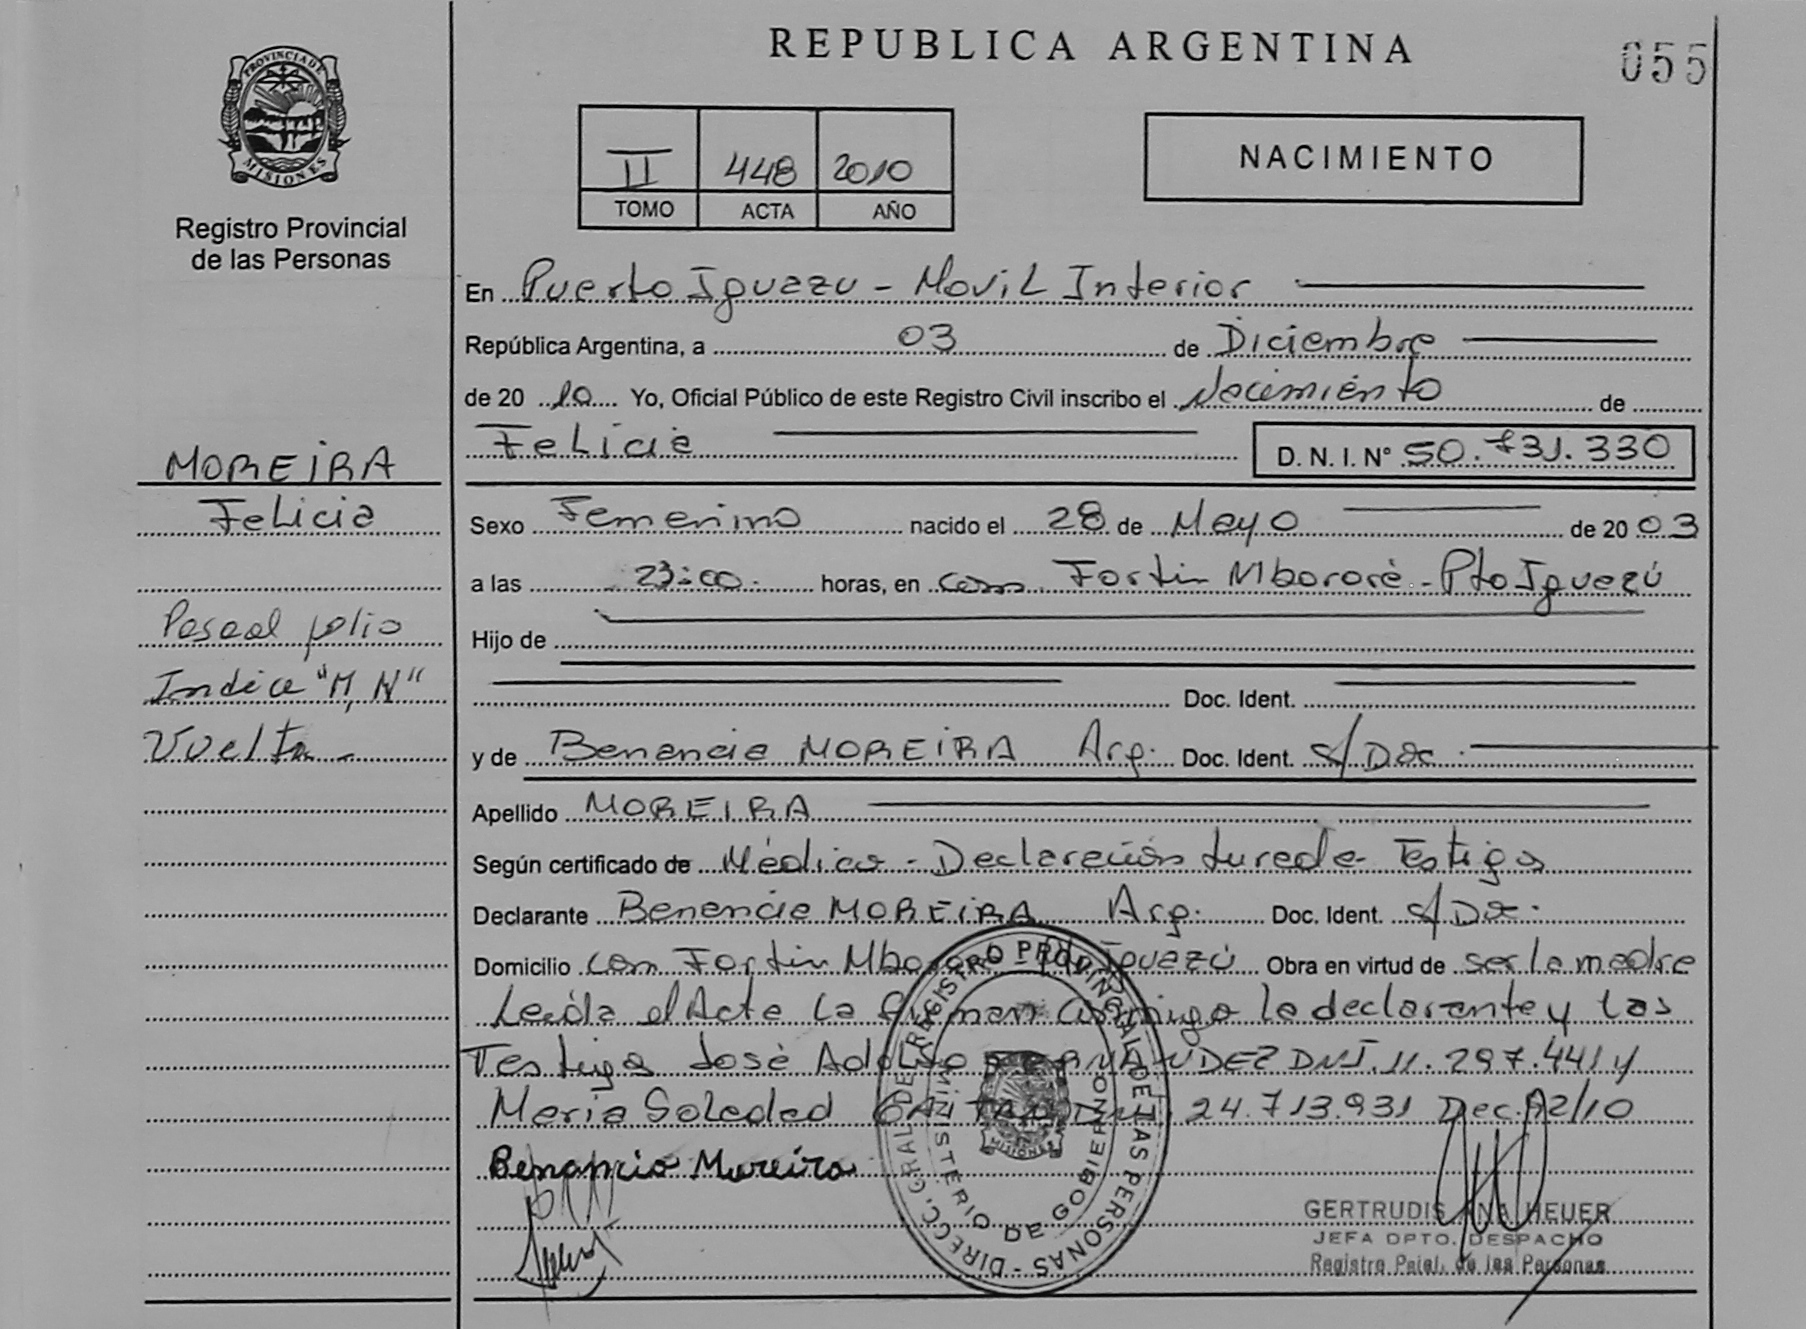 REPUBLICA ARGENTINA
055
PROVINCIA DE
MISIONES
Registro Provincial
de las Personas
II 448 2010
TOMO ACTA AÑO
NACIMIENTO
En Puerto Iguazu - Movil Interior
República Argentina, a 03 de Diciembre
de 20 10 Yo, Oficial Público de este Registro Civil inscribo el Nacimiento de
Felicia D. N. I. N° 50.731.330
MOREIRA
Felicia
Sexo Femenino nacido el 28 de Mayo de 20 03
a las 23:00 horas, en Com Fortin Mbororé - Pto Iguazú
Hijo de
Doc. Ident.
Indice "M, N"
Vuelta
y de Benancia MOREIRA Arg. Doc. Ident. s/Doc.
Apellido MOREIRA
Según certificado de Médico - Declaración Jurada - Testigos
Declarante Benancia MOREIRA Arg. Doc. Ident. s/Doc.
Domicilio Com Fortin Mbororé - Pto Iguazú Obra en virtud de ser la madre
Leida el Acta la firman conmigo la declarante y los
Testigos José Adolfo DNI. 11.297.441 y
Maria Soledad 24.713.931 Dec. 92/10
Benancia Mureira
DIRECC. GRAL. DE REGISTRO PROVINCIAL DE LAS PERSONAS
MINISTERIO DE GOBIERNO
MISIONES
GERTRUDIS ANA HEUER
JEFA DPTO. DESPACHO
Registro Pcial. de las Personas